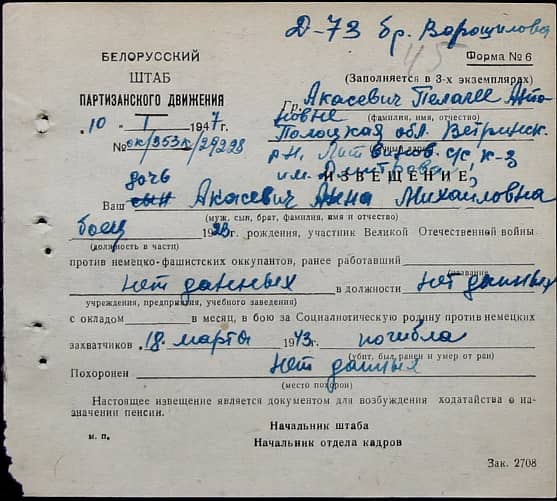 Д-73 бр. Ворошилова
45
БЕЛОРУССКИЙ
ШТАБ
ПАРТИЗАНСКОГО ДВИЖЕНИЯ
Форма № 6
(Заполняется в 3-х экземплярах)
„10 I 1947г.
Гр. Акасевич Пелагее Анто
новне
(фамилия, имя, отчество)
№ ок/353к/24228
Полоцкая обл. Ветринск.
р-н, с/с к-з
им. Дмитрова
ИЗВЕЩЕНИЕ
дочь
Ваш сын Акасевич Анна Михайловна
(муж, сын, брат, фамилия, имя и отчество)
боец 1923г. рождения, участник Великой Отечественной войны
(должность в части)
против немецко-фашистских оккупантов, ранее работавший
(название
нет данных в должности нет данных
учреждения, предприятия, учебного заведения)
с окладом в месяц, в бою за Социалистическую родину против немецких
захватчиков „18. марта 1943г. погибла
(убит, был ранен и умер от ран)
Похоронен нет данных
(место похорон)
Настоящее извещение является документом для возбуждения ходатайства о на-
значении пенсии.
Начальник штаба
м. п.
Начальник отдела кадров
Зак. 2708